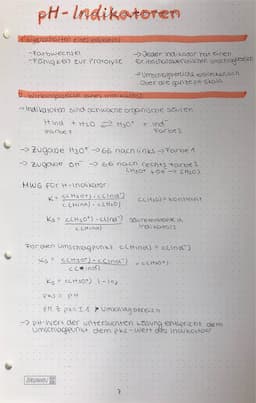 pH-Indikatoren
Eigenschaften eines Indikators
→Farbwechsel
→Fähigkeit zur Protolyse
→Jeder Indikator hat einen
→Umschlagbereich
über die gesamte Skala
Wirkungsweise eines Indikators
→Indikatoren sind schwache organische Säuren
HInd + H2O ⇌ H3O+ + Ind-
Farbe 1 Farbe 2
→ Zugabe H3O+ → GG nach links → Farbe 1
→ Zugabe OH- → GG nach rechts Farbe 2
MWG für H-Indikator:
K = c(H3O+) · c(Ind-)
c(HInd) · c(H2O)
c(H2O) = konstant
KS = c(H3O+) · c(Ind-)
c(HInd)
Säurekonstante d.
Indikators
Für den Umschlagpunkt c(HInd) = c(Ind-)
KS = c(H3O+) · c(Ind-)
c(HInd)
= c(H3O+)
KS = c(H3O+) | -lg
pKS = pH
pH = pKS ± 1 → Umschlagbereich
→ pH-Wert der untersuchten Lösung entspricht dem
Umschlagpunkt dem pKs-Wert des Indikator